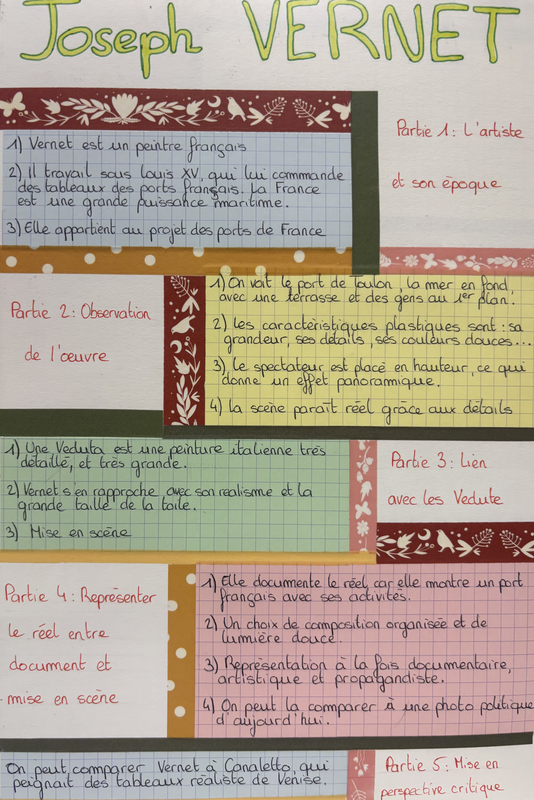 Joseph VERNET
Partie 1 : L'artiste
et son époque
1) Vernet est un peintre français
2) Il travail sous Louis XV, qui lui commande
des tableaux des ports français. La France
est une grande puissance maritime.
3) Elle appartient au projet des ports de France
Partie 2 : Observation
de l'œuvre
1) On voit le port de Toulon, la mer en fond,
avec une terrasse et des gens au 1er plan.
2) Les caractéristiques plastiques sont : sa
grandeur, ses détails, ses couleurs douces...
3) Le spectateur est placé en hauteur, ce qui
donne un effet panoramique.
4) la scène paraît réel grâce aux détails
Partie 3 : Lien
avec les Vedute
1) Une Veduta est une peinture italienne très
détaillé, et très grande.
2) Vernet s'en rapproche avec son réalisme et la
grande taille de la toile.
3) Mise en scène
Partie 4 : Représenter
le réel entre
document et
mise en scène
1) Elle documente le réel car elle montre un port
français avec ses activités.
2) Un choix de composition organisée et de
lumière douce.
3) Représentation à la fois documentaire,
artistique et propagandiste.
4) On peut la comparer à une photo politique
d'aujourd'hui.
Partie 5 : Mise en
perspective critique
On peut comparer Vernet à Canaletto, qui
peignait des tableaux réaliste de Venise.